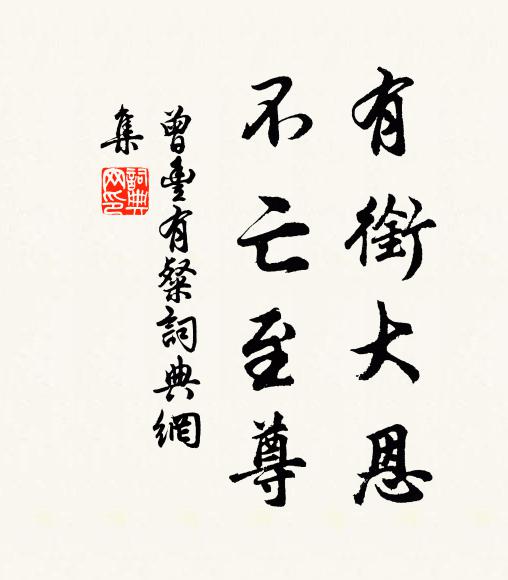 有銜大恩
不亡至尊
曾豐有粲詞典網
集
詞典
网印